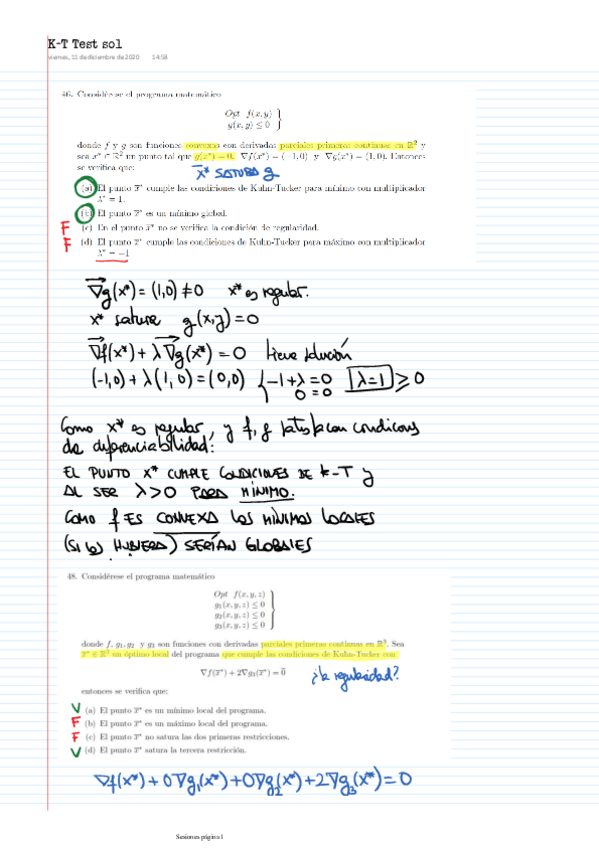 K-T Test sol
viernes, 11 de diciembre de 2020 14:58
46. Considérese el programa matemático
Opt f(x, y)
g(x, y) ≤ 0
donde f y g son funciones convexas con derivadas parciales primeras continuas en ℝ² y
sea x̄* ∈ ℝ² un punto tal que g(x̄*) = 0, ∇f(x̄*) = (−1, 0) y ∇g(x̄*) = (1, 0). Entonces
se verifica que:
x̄* SATURA g
(a) El punto x̄* cumple las condiciones de Kuhn-Tucker para mínimo con multiplicador
λ* = 1.
(b) El punto x̄* es un mínimo global.
F (c) En el punto x̄* no se verifica la condición de regularidad.
F (d) El punto x̄* cumple las condiciones de Kuhn-Tucker para máximo con multiplicador
λ* = −1
∇g(x*) = (1,0) ≠ 0 x* es regular.
x* satura g(x,y) = 0
∇f(x*) + λ∇g(x*) = 0 tiene solución
(-1,0) + λ(1,0) = (0,0) { -1+λ=0 λ=1 ≥ 0
0=0
Como x* es regular, y f, g satisfacen condiciones
de diferenciabilidad:
EL PUNTO x* CUMPLE CONDICIONES DE K-T y
AL SER λ>0 PARA MÍNIMO.
COMO f ES CONVEXA LOS MÍNIMOS LOCALES
(SI LOS HUBIERA) SERÍAN GLOBALES
48. Considérese el programa matemático
Opt f(x, y, z)
g₁(x, y, z) ≤ 0
g₂(x, y, z) ≤ 0
g₃(x, y, z) ≤ 0
donde f, g₁, g₂ y g₃ son funciones con derivadas parciales primeras continuas en ℝ³. Sea
x̄* ∈ ℝ³ un óptimo local del programa que cumple las condiciones de Kuhn-Tucker con
∇f(x̄*) + 2∇g₃(x̄*) = 0̄
¿la regularidad?
entonces se verifica que:
V (a) El punto x̄* es un mínimo local del programa.
F (b) El punto x̄* es un máximo local del programa.
F (c) El punto x̄* no satura las dos primeras restricciones.
V (d) El punto x̄* satura la tercera restricción.
∇f(x*) + 0∇g₁(x*) + 0∇g₂(x*) + 2∇g₃(x*) = 0
Sesiones página 1